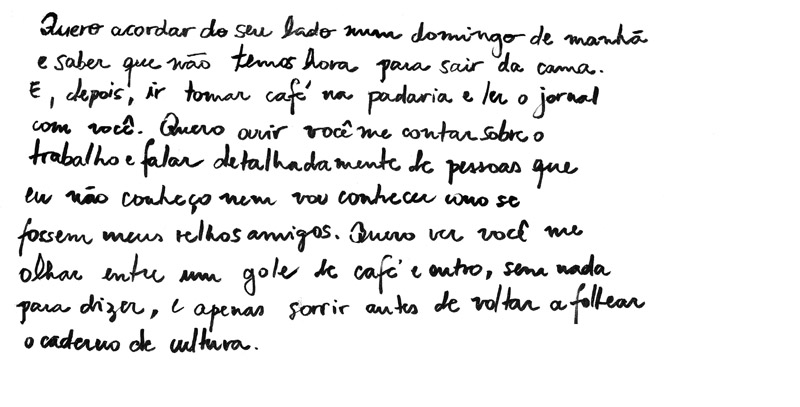 Quero acordar do seu lado num domingo de manhã
e saber que não temos hora para sair da cama.
E, depois, ir tomar café na padaria e ler o jornal
com você. Quero ouvir você me contar sobre o
trabalho e falar detalhadamente de pessoas que
eu não conheço nem vou conhecer como se
fossem meus velhos amigos. Quero ver você me
olhar entre um gole de café e outro, sem nada
para dizer, e apenas sorrir antes de voltar a folhear
o caderno de cultura.